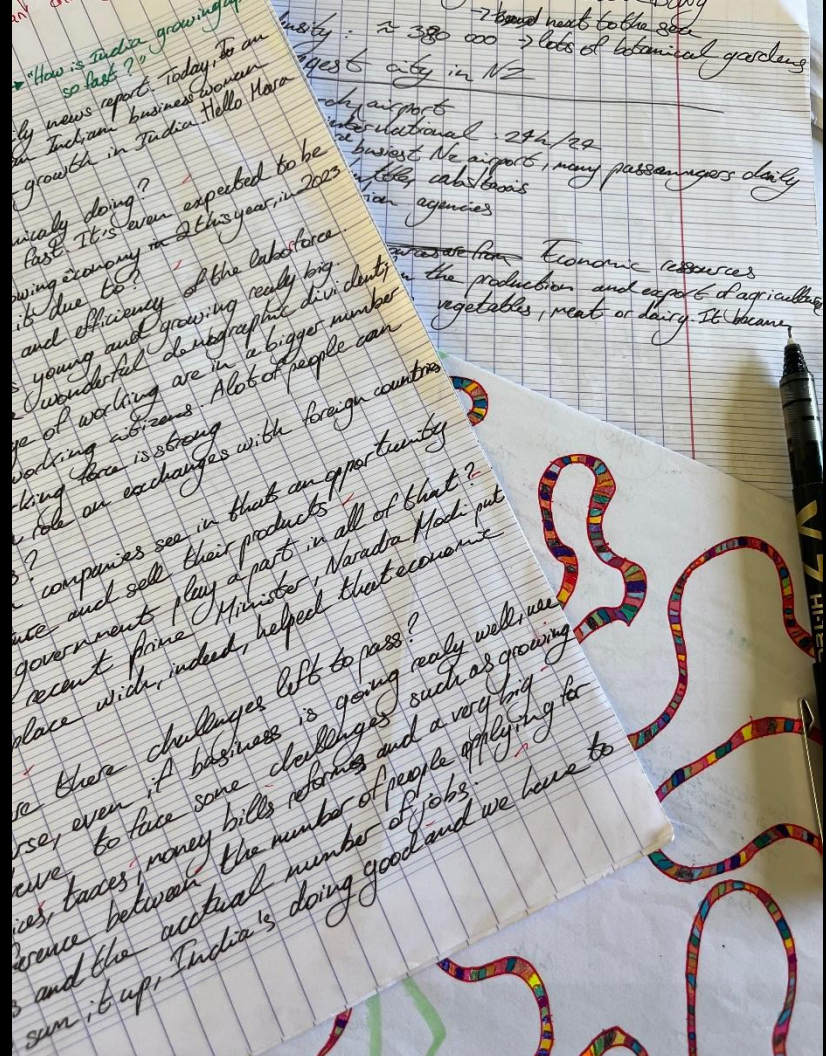 "How is India growing up
so fast?"
ly news report. Today, To an
an Indian business woman
growth in India Hello Hara
nicaly doing?
fast. It's even expected to be
owing economy in 2 this year, in 2023
it due to?
and efficiency of the labosforce.
s young and growing realy big.
wonderful demographic dividenti
ge of working are in a bigger number
working citizens. A lot of people can
king force is strong
role on exchanges with foreign countries
s?
companies see in thats an opportunity
ure and sell their products
government play a part in all of that?
recent prime Minister, Naradra Modi put
place wich, indeed, helped that economic
re there challenges left to pass?
rse, even if business is going realy well, we
to face some challenges such as growing
ices, taxes, money bills reforms and a very big
erence between the number of people applying for
s and the acctual number of jobs.
sum it up, India's doing good and we have to
next to the sea
nsity : ≈ 380 000 → lots of botanical gardens
gest city in NZ
ch airport
international . 24h/24
busiest NZ airport, many passengers daily
agencies
Economic ressources
the production and export of agriculture
vegetables, meat or dairy. It became
V7